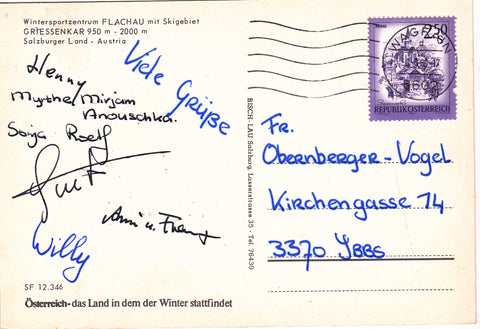 Wintersportzentrum FLACHAU mit Skigebiet
GRIESSENKAR 950 m - 2000 m
Salzburger Land - Austria
Viele Grüße
Henny
Mythe Mirjam
Anouschka.
Sonja Roelf
Anni u. Franz
Willy
SF 12.346
Österreich-das Land in dem der Winter stattfindet
BISCH-LAU Salzburg Lasserstrasse 35 - Tel. 76430
2.50
WAGRAIN
REPUBLIK ÖSTERREICH
Fr.
Obernberger-Vogel
Kirchengasse 14
3370 YBBS